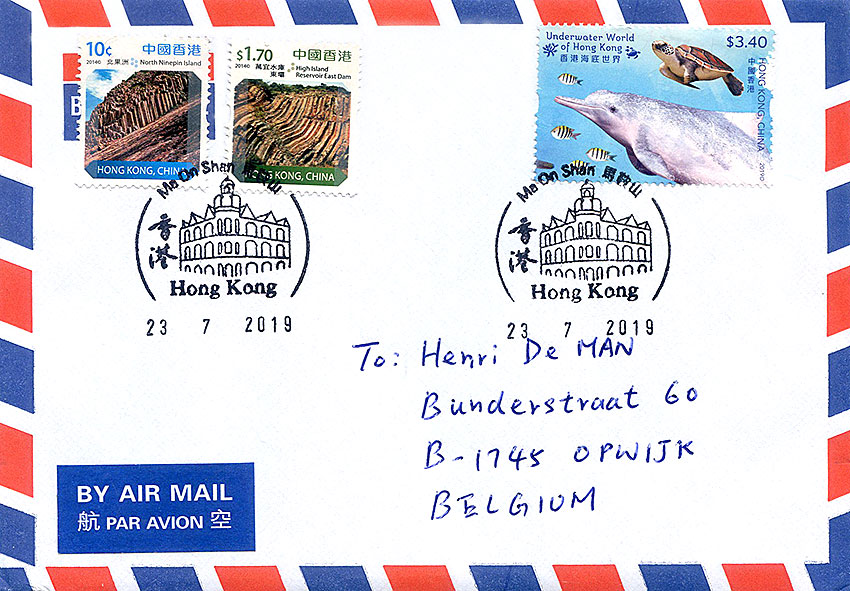 10¢ 中國香港
2014© 北果洲 North Ninepin Island
HONG KONG, CHINA
$1.70 中國香港
2014© 萬宜水庫東壩 High Island Reservoir East Dam
HONG KONG, CHINA
Underwater World
of Hong Kong
香港海底世界
$3.40
中國香港
HONG KONG, CHINA
2019©
B
Ma On Shan 馬鞍山
香港
Hong Kong
23 7 2019
Ma On Shan 馬鞍山
香港
Hong Kong
23 7 2019
To: Henri De MAN
Bunderstraat 60
B-1745 OPWIJK
BELGIUM
BY AIR MAIL
航 PAR AVION 空